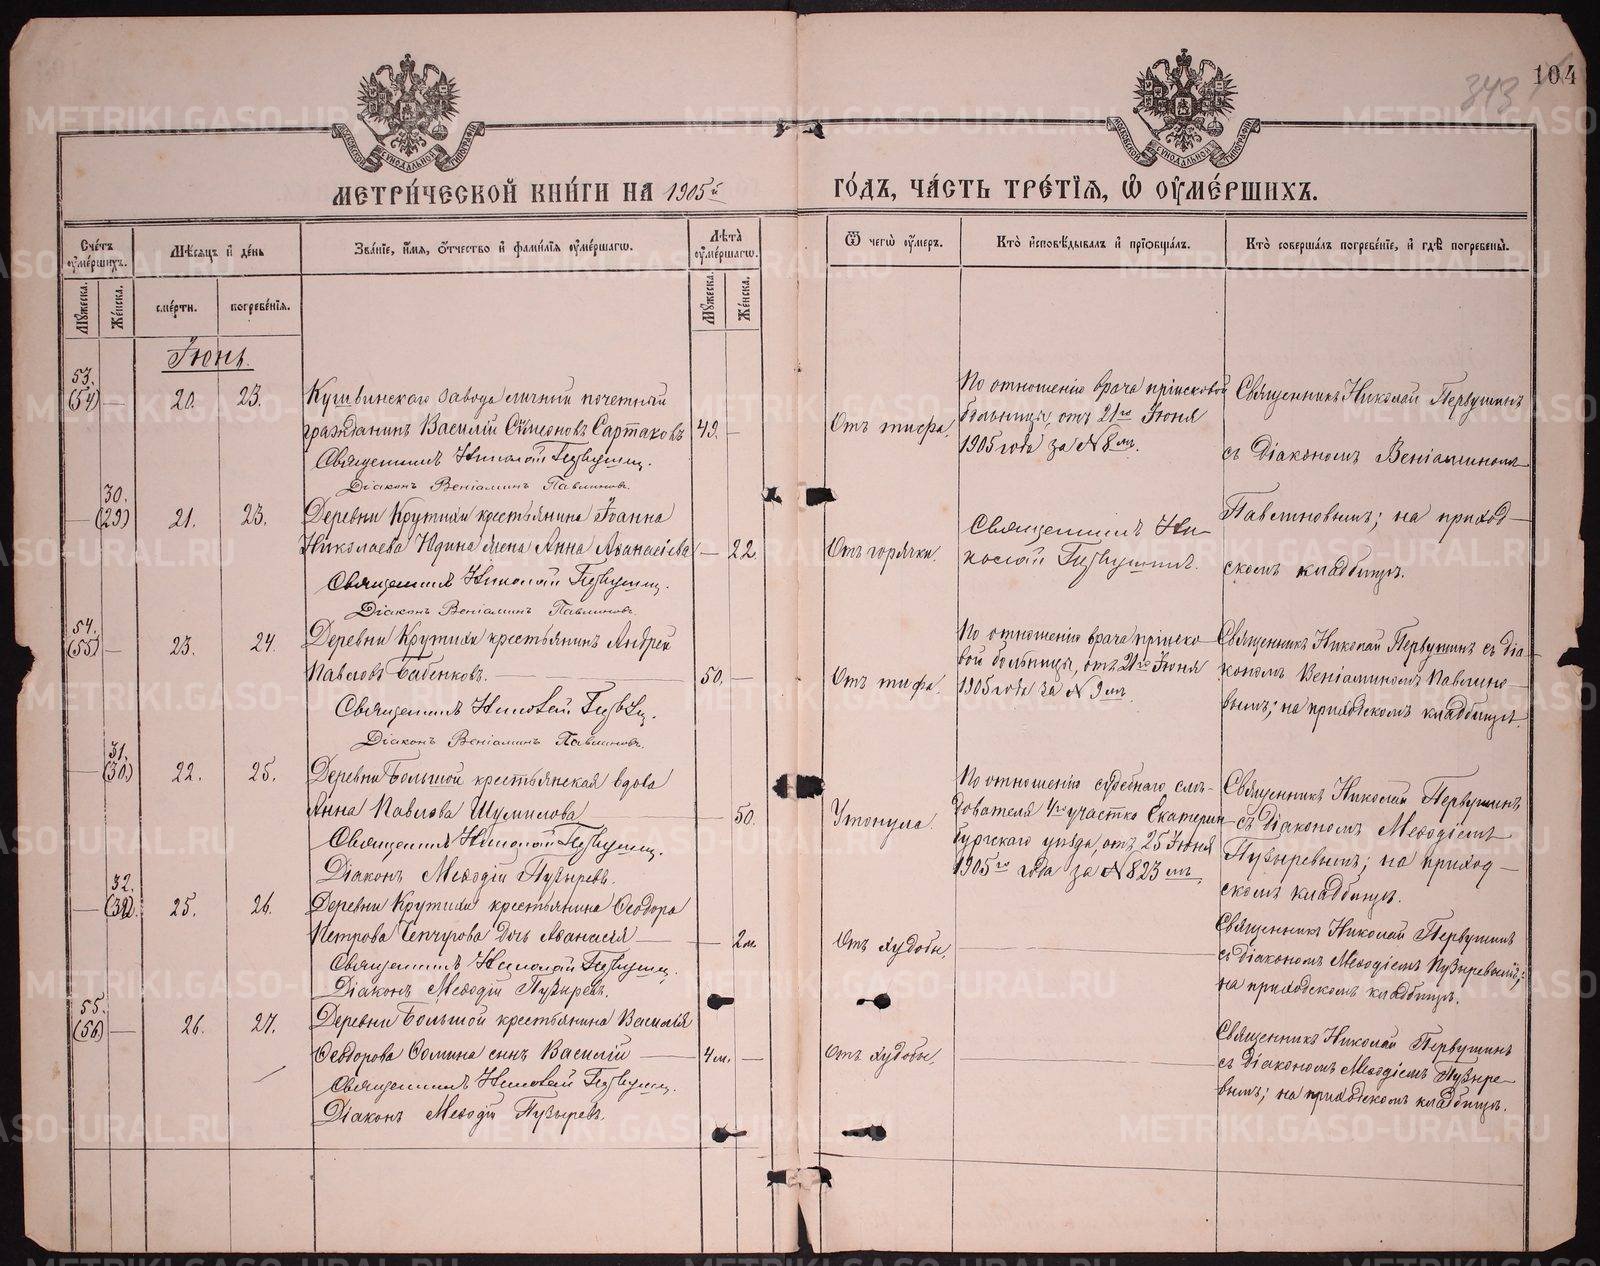 104
343
МЕТРИ́ЧЕСКОЙ КНИ́ГИ НА 1905й ГО́ДЪ, ЧА́СТЬ ТРЕ́ТЇЯ, Ѡ ОУМЕ́РШИХЪ.
Сче́тъ оуме́ршихъ.
Мѣ́сяцъ и де́нь
Зва́нїе, и́мя, о́тчество и фами́лїя оуме́ршагѡ.
Лѣ́та оуме́ршагѡ.
Ѿ чегѡ̀ оу́меръ.
Кто̀ и́сповѣ́дывалъ и прїобща́лъ.
Кто̀ соверша́лъ погребе́нїе, и гдѣ̀ погребены̀.
Мꙋ́жеска.
Же́нска.
сме́рти.
погребе́нїя.
Мꙋ́жеска.
Же́нска.
Іюнь.
53.
(54) — 20. 23.
Кушвинскаго завода личный почетный
гражданинъ Василій Симеоновъ Сартаковъ 49. —
Священникъ Николай Первушин.
Діаконъ Веніаминъ Павлиновъ.
Отъ тифа.
По отношенію врача пріисковой
больницы, отъ 21го Іюня
1905 года за № 8мъ.
Священникъ Николай Первушинъ
съ Діакономъ Веніаминомъ
Павлиновымъ; на приход-
скомъ кладбищѣ.
30.
— (29) 21. 23.
Деревни Крутихи крестьянина Іоанна
Николаева Юдина жена Анна Аѳанасіева — 22
Священник Николай Первушин.
Діаконъ Веніаминъ Павлиновъ.
Отъ горячки.
Священникъ Ни-
колай Первушинъ.
54.
(55) — 23. 24.
Деревни Крутихи крестьянинъ Андрей
Павловъ Бабенковъ. 50. —
Священникъ Николай Первуш.
Діаконъ Веніаминъ Павлиновъ.
Отъ тифа.
По отношенію врача пріиско-
вой больницы, отъ 21го Іюня
1905 года за № 9мъ
Священникъ Николай Первушинъ съ Діа-
кономъ Веніаминомъ Павлино-
вымъ; на приходскомъ кладбищѣ.
31.
— (30) 22. 25.
Деревни Большой крестьянская вдова
Анна Павлова Шумилова — 50.
Священникъ Николай Первушин.
Діаконъ Меѳодій Пузыревъ.
Утонула.
По отношенію судебнаго слѣ-
дователя 4го участка Екатерин-
бургскаго уѣзда, отъ 25 Іюня
1905го года за № 823мъ.
Священникъ Николай Первушинъ
съ Діакономъ Меѳодіемъ
Пузыревымъ; на приход-
скомъ кладбищѣ.
32.
— (31). 25. 26.
Деревни Крутихи крестьянина Ѳеодора
Петрова Чепчугова дочь Аѳанасія — 2м
Священникъ Николай Первушин.
Діаконъ Меѳодій Пузыревъ.
Отъ худобы.
Священникъ Николай Первушинъ
съ Діакономъ Меѳодіемъ Пузыревымъ;
на приходскомъ кладбищѣ.
55.
(56) — 26. 27.
Деревни Большой крестьянина Василія
Ѳеодорова Ѳомина сынъ Василій — 4м. —
Священникъ Николай Первушин.
Діаконъ Меѳодій Пузыревъ.
Отъ худобы.
Священникъ Николай Первушинъ
съ Діакономъ Меѳодіемъ Пузыре-
вымъ; на приходскомъ кладбищѣ.